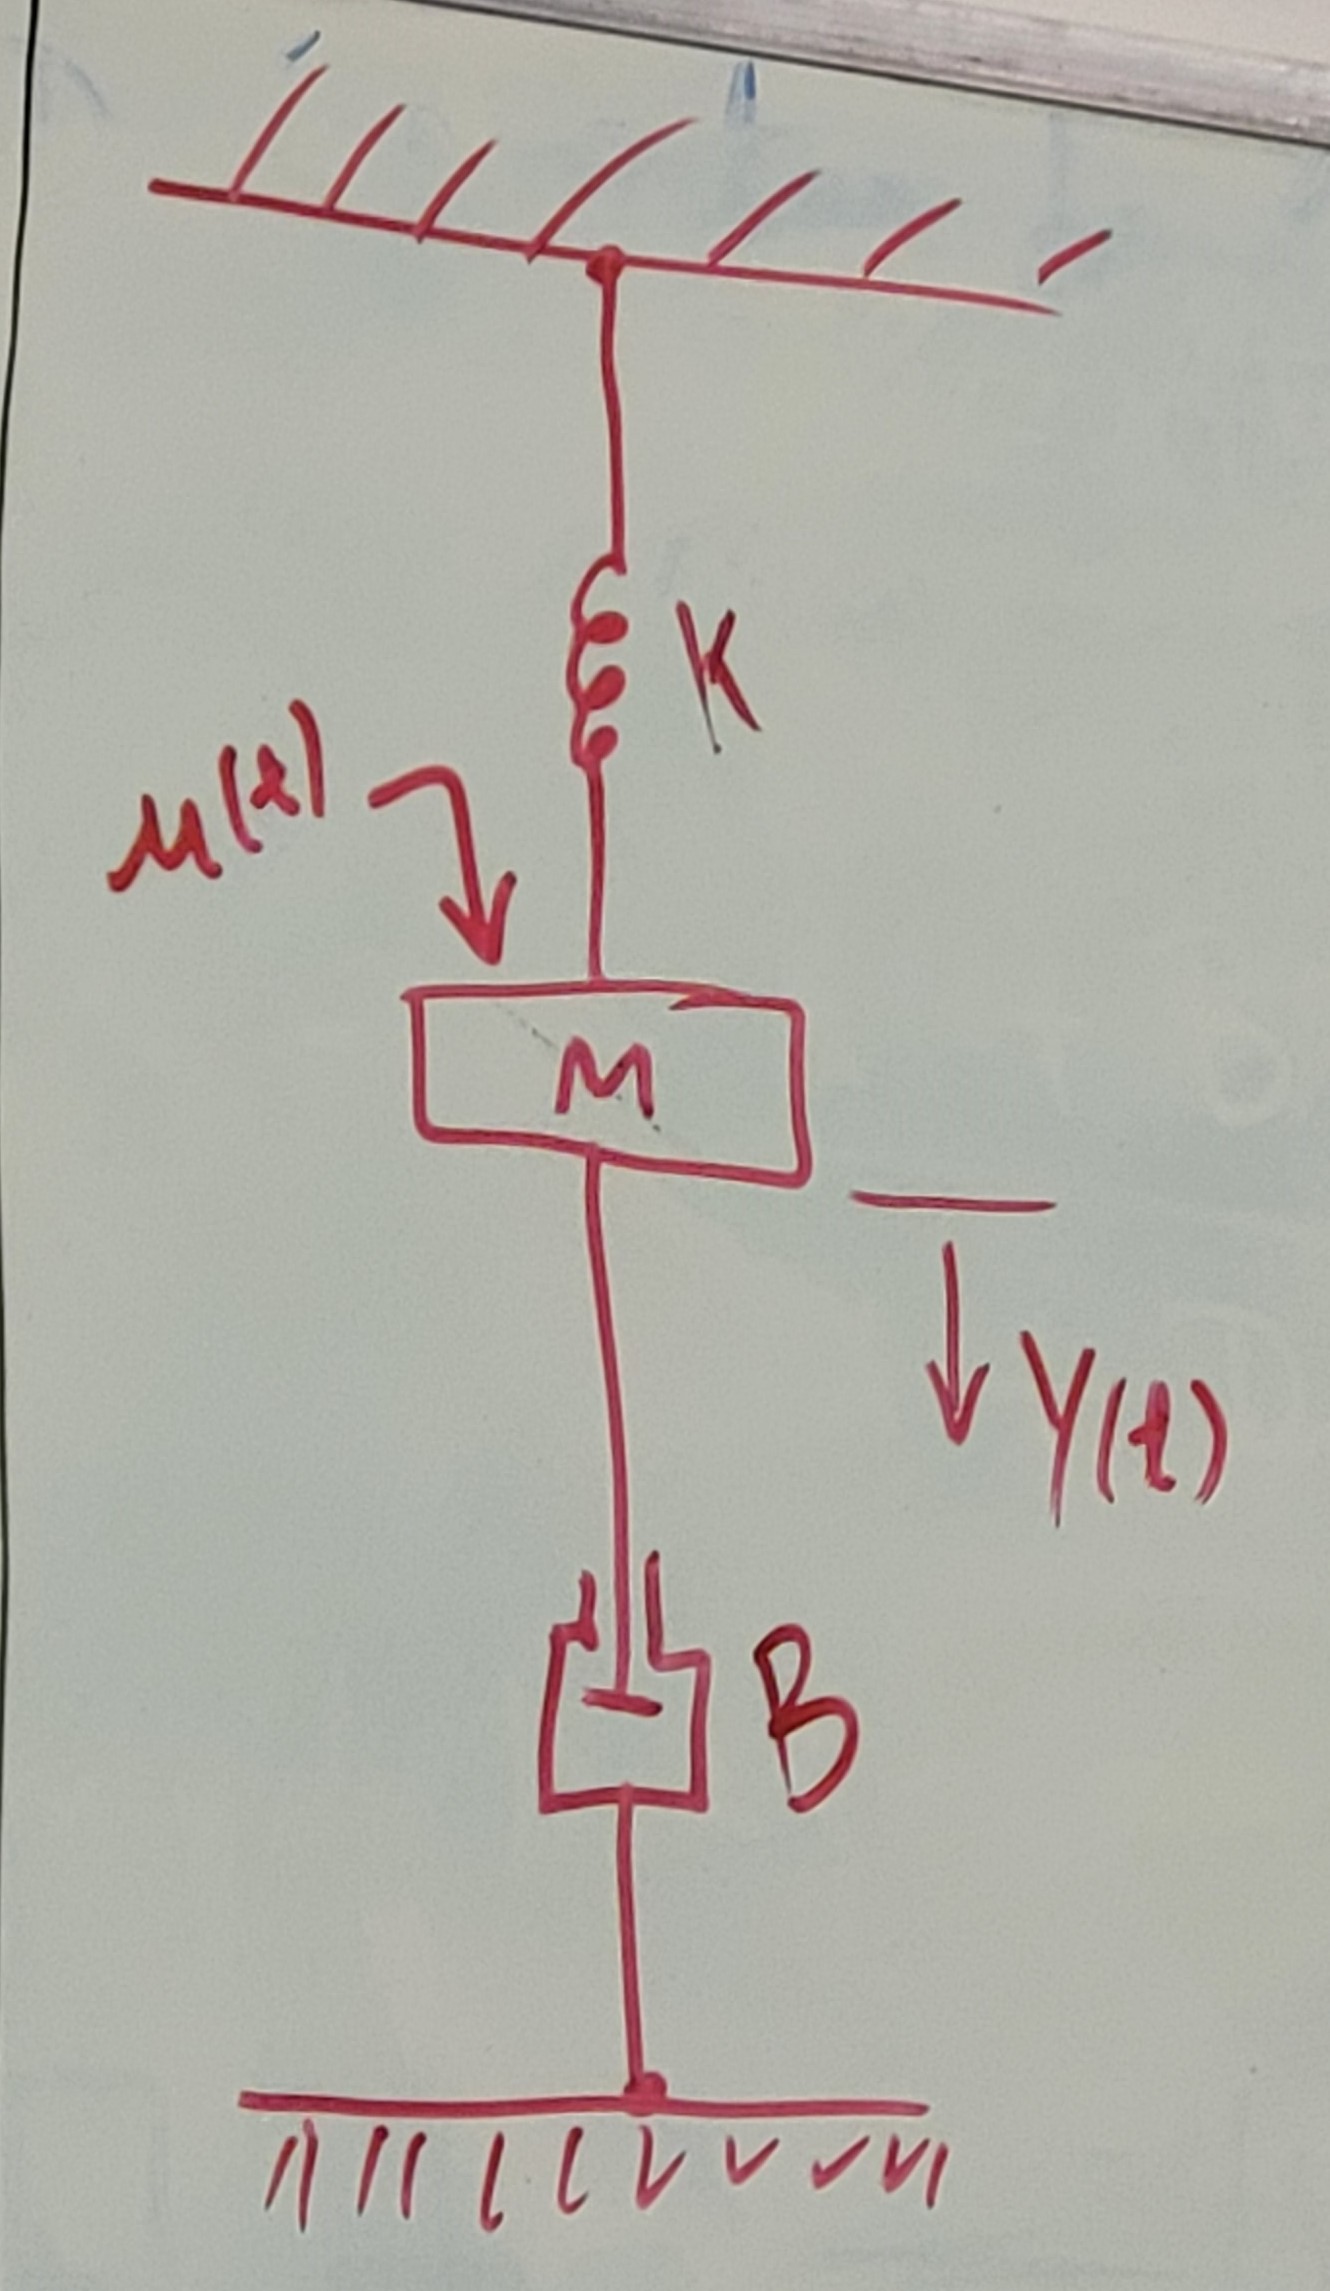 K
u(t)
M
y(t)
B